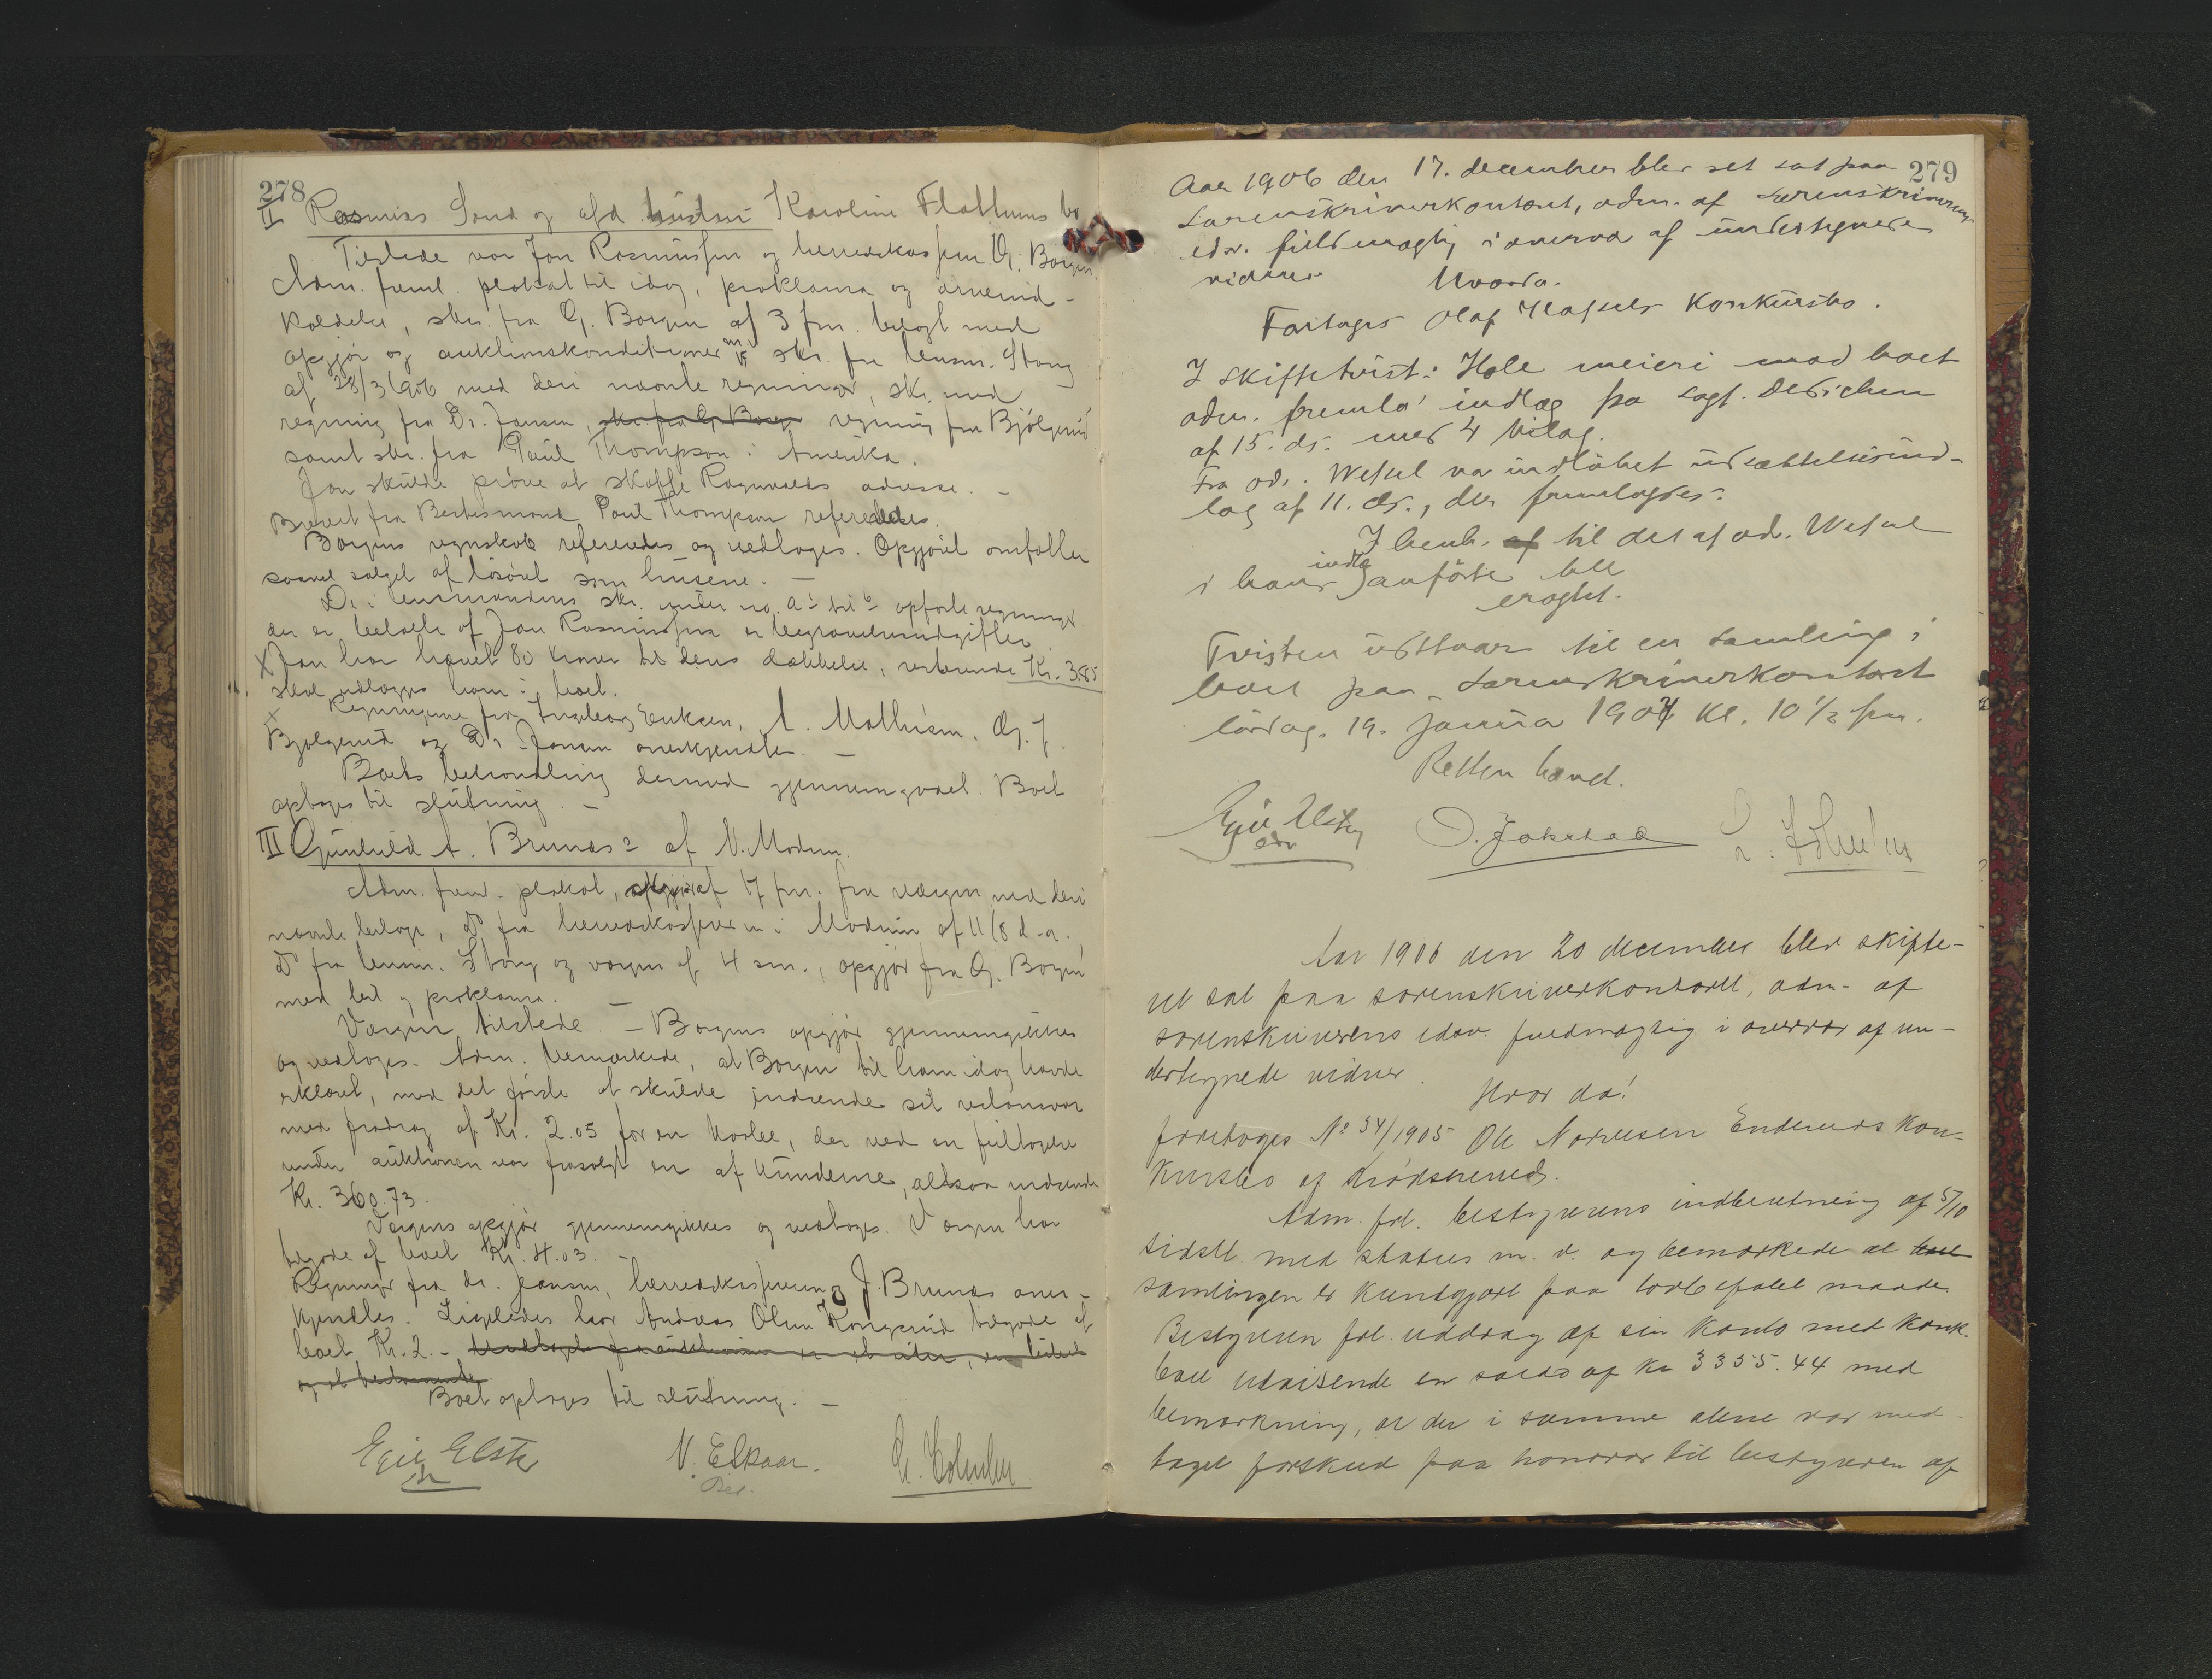 278
II Rasmus Sond og afd. hustru Karoline Flathums bo
Tilstede var Jon Rasmussen og herredskasserer G. Borgen.
Adm. freml. plakat til idag, proklama og arveind-
kaldelse, skr. fra G. Borgen af 3 fm. belagt med
opgjör og auktionskonditioner m. v., skr. fra lensm. Stang
af 28/3 1906 med deri nævnte regninger, skr. med
regning fra Dr. Jansen, skr. fra G. Borgen regning fra Bjölgerud
samt skr. fra Paul Thompson i Amerika.
Jon skulde pröve at skaffe Ragnvalds adresse. -
Brevet fra Bestesmand Paul Thompson refereredes.
Borgens regnskab refereredes og vedtoges. Opgjöret omfatter
saavel salget af lösöret som husene. -
De i lensmandens skr. under no. a til opförte regninger
der er betalte af Jon Rasmussen er begravelsesudgifter.
X Jon har hævet 80 kroner til deres dækkelse, resterende Kr. 3.85
skal udlægges ham i boet.
X Regningerne fra Ingeborg Eriksen, A. Mathiesen, G. J.
Bjölgerud og Dr. Jansen anerkjendtes. -
Boets behandling dermed gjennemgaaet. Boet
optages til slutning. -
III Gunhild A. Brunæs af N. Modum.
Adm. freml. plakat, opgjör af 17 fm. fra værgen med deri
nævnte bilage, Do fra herredskassereren i Modum af 11/8 d. a.
Do fra lensm. Stang og værgen af 4 sm., opgjör fra G. Borgen
med bil. og proklama. -
Værgen tilstede. - Borgens opgjör gjennemgikkes
og vedtoges. Adm. bemærkede, at Borgen til ham idag havde
erklæret, med det förste at skulde indsende sit restansvar
med fradrag af Kr. 2.05 for en , der ved en feiltagelse
under auktionen var frasolgt en af kunderne, altsaa indsende
Kr. 360.73.
Værgens opgjör gjennemgikkes og vedtoges. Værgen har
tilgode af boet Kr. 4.03. -
Regninger fra dr. Jansen, herredskassereren og J. Brunæs aner-
kjendtes. Ligeledes har Andreas Olsen Kongerud tilgode af
boet Kr. 2. -
Boet optages til slutning. -
Egil Elster
N. Elkaar.
279
Aar 1906 den 17. december blev ret sat paa
Sorenskriverkontoret, adm. af Sorenskriverens
edsv. fuldmægtig i overvær af undertegnede
vidner. Hvorda.
Foretages Olaf Hassels Konkursbo.
I skiftetvist: Hole meieri mod boet
adm. fremla' indlæg fra sagf. Diderichsen
af 15. ds. med 4 bilag.
Fra adv. Wessel var indlöbet udsættelsesind-
læg af 11. ds., der fremlagdes.
I henh. af til det af adv. Wessel
i hans indlæg anförte blev
eragtet.
Tvisten udstaar til en samling i
boet paa Sorenskriverkontoret
lördag 19. januar 1907 Kl. 10 1/2 fm.
Retten hævet.
Egil Elster
edsv
O. Jokstad
Aar 1906 den 20 december blev skifte-
ret sat paa sorenskriverkontoret, adm. af
sorenskriverens edsv. fuldmægtig i overvær af un-
dertegnede vidner.
Hvor da!
foretoges No 34/1905 Ole Narvesen Enderuds kon-
kursbo af Krödsherred.
Adm. frl. bestyrerens indberetning af 5/10
sidstl. med status m. v. og bemærkede at boet
samlingen er kundgjort paa lovbefalet maade.
Bestyreren frl. uddrag af sin konto med konk.
boet udvisende en saldo af Kr 3355.44 med
bemærkning, at der i samme alene var med-
taget forskud paa honorar til bestyreren af